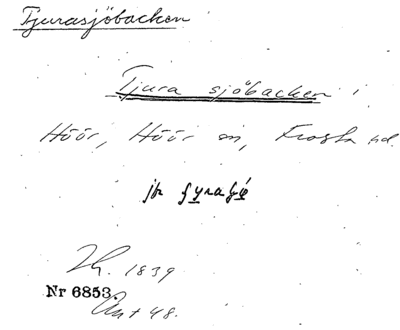 Tjurasjöbacken
Tjura sjöbacken i
Höör, Höör sn, Frosta hd.
jfr
1839
Nr 6853.
48.